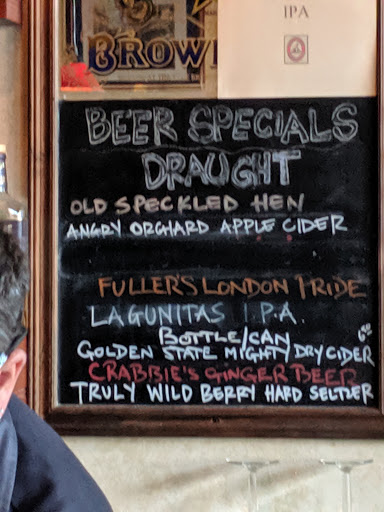 IPA
BROW
BEER SPECIALS
DRAUGHT
OLD SPECKLED HEN
ANGRY ORCHARD APPLE CIDER
FULLER'S LONDON PRIDE
LAGUNITAS I.P.A.
BOTTLE/CAN
GOLDEN STATE MIGHTY DRY CIDER
CRABBIE'S GINGER BEER
TRULY WILD BERRY HARD SELTZER